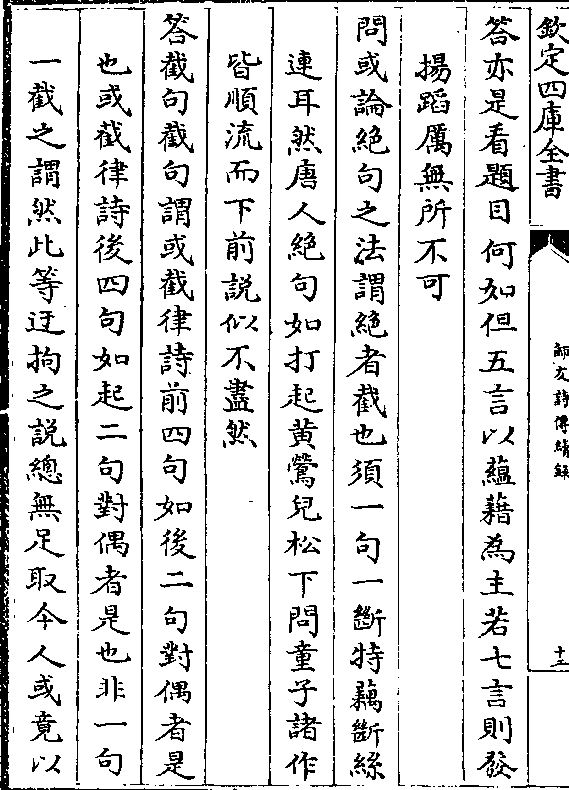 欽定四庫全書
師友詩傳續錄
十三
答亦是看題目何如但五言以蘊藉為主若七言則發
揚蹈厲無所不可
問或論絶句之法謂絶者截也須一句一斷特藕斷絲
連耳然唐人絶句如打起黄鶯兒松下問童子諸作
皆順流而下前説似不盡然
答截句截句謂或截律詩前四句如後二句對偶者是
也或截律詩後四句如起二句對偶者是也非一句
一截之謂然此等迂拘之説總無足取今人或竟以